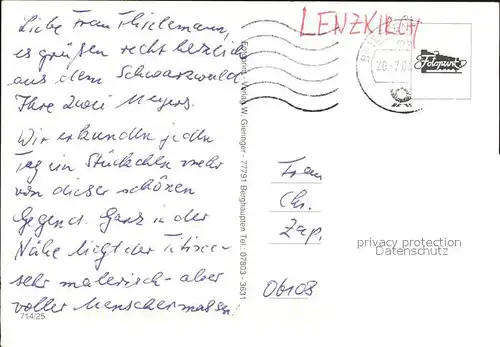 LENZKIRCH
Liebe Frau Thielemann,
es grüßen recht herzlich
aus dem Schwarzwald
Ihre zwei Meyers.
Wir erkunden jeden
Tag ein Stückchen mehr
von dieser schönen
Gegend. Ganz in der
Nähe liegt der Titisee -
sehr malerisch - aber
voller Menschenmassen!
714/25
Verlag W. Gieringer - 77791 Berghaupten Tel.: 07803 - 3631
20.-7.0
Fotopunkt
Frau
Chr.
Zap.
06108
privacy protection
Datenschutz